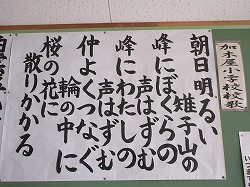 加木屋小学校校歌
朝日明るい
雉子山の
峰にぼくらの
声はずむ
峰にわたしの
声はずむ
仲よくつなぐ
輪の中に
桜の花に
散りかかる